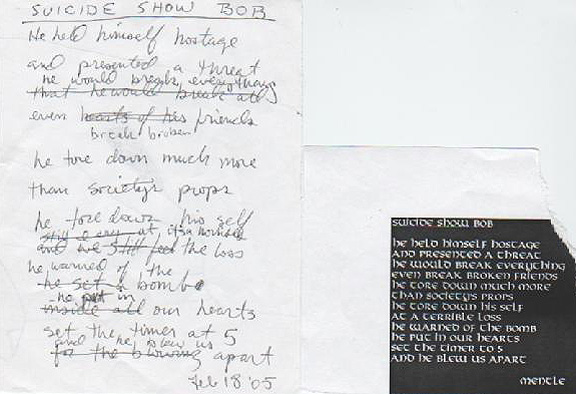 SUICIDE SHOW BOB
He held himself hostage
and presented a threat
he would break everything
that he would break all
even hearts of his friends
break broken
he tore down much more
than societys props
he tore down his self
and we still feel the loss
he warned of the
he set a bomb
he put in
inside all our hearts
set the timer at 5
and he blew us
for the blowing apart
Feb 18 '05
suicide show bob
he held himself hostage
and presented a threat
he would break everything
even break broken friends
he tore down much more
than societys props
he tore down his self
at a terrible loss
he warned of the bomb
he put in our hearts
set the timer to 5
and he blew us apart
mentle